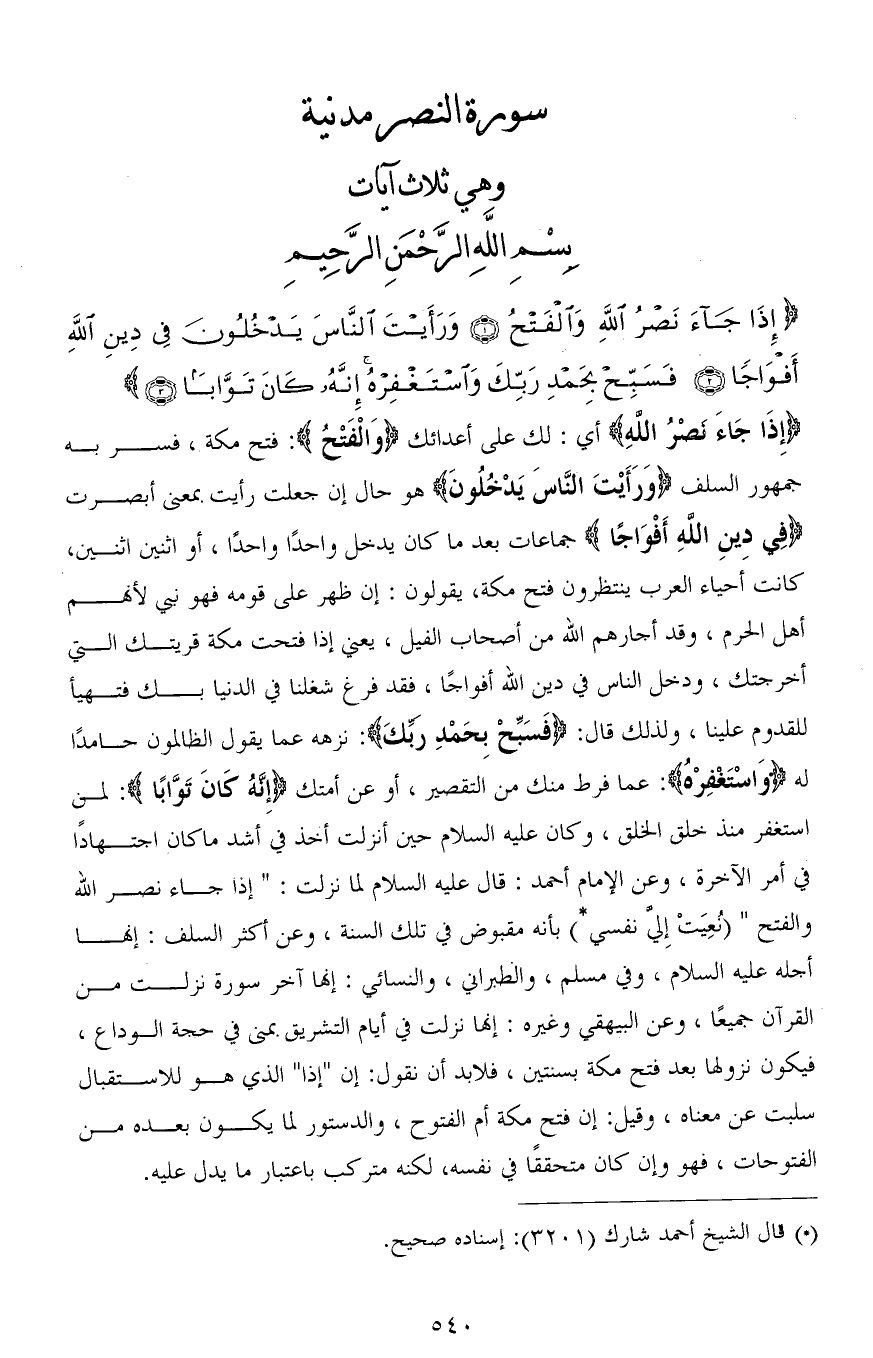 سورة النصر مدنية
وهي ثلاث آيات
بِسْمِ اللَّهِ الرَّحْمَنِ الرَّحِيمِ
﴿ إِذَا جَآءَ نَصْرُ ٱللَّهِ وَٱلْفَتْحُ ۝١ وَرَأَيْتَ ٱلنَّاسَ يَدْخُلُونَ فِى دِينِ ٱللَّهِ
أَفْوَاجًا ۝٢ فَسَبِّحْ بِحَمْدِ رَبِّكَ وَٱسْتَغْفِرْهُ ۚ إِنَّهُۥ كَانَ تَوَّابًۢا ۝٣ ﴾
﴿إِذَا جَاءَ نَصْرُ اللَّهِ﴾ أي : لك على أعدائك ﴿وَالْفَتْحُ ﴾: فتح مكة ، فسر به
جمهور السلف ﴿وَرَأَيْتَ النَّاسَ يَدْخُلُونَ﴾ هو حال إن جعلت رأيت بمعنى أبصرت
﴿فِي دِينِ اللَّهِ أَفْوَاجًا ﴾ جماعات بعد ما كان يدخل واحدًا واحدًا ، أو اثنين اثنين،
كانت أحياء العرب ينتظرون فتح مكة، يقولون : إن ظهر على قومه فهو نبي لأنهم
أهل الحرم ، وقد أجارهم الله من أصحاب الفيل ، يعني إذا فتحت مكة قريتك التي
أخرجتك ، ودخل الناس في دين الله أفواجًا ، فقد فرغ شغلنا في الدنيا بك فتهيأ
للقدوم علينا ، ولذلك قال: ﴿فَسَبِّحْ بِحَمْدِ رَبِّكَ﴾: نزهه عما يقول الظالمون حامدًا
له ﴿وَاسْتَغْفِرْهُ﴾: عما فرط منك من التقصير ، أو عن أمتك ﴿إِنَّهُ كَانَ تَوَّابًا ﴾: لمن
استغفر منذ خلق الخلق ، وكان عليه السلام حين أنزلت أخذ في أشد ماكان اجتهادًا
في أمر الآخرة ، وعن الإمام أحمد : قال عليه السلام لما نزلت : " إذا جاء نصر الله
والفتح " (نُعِيَتْ إِليَّ نفسي*) بأنه مقبوض في تلك السنة ، وعن أكثر السلف : إنها
أجله عليه السلام ، وفي مسلم ، والطبراني ، والنسائي : إنها آخر سورة نزلت من
القرآن جميعًا ، وعن البيهقي وغيره : إنها نزلت في أيام التشريق بمنى في حجة الوداع ،
فيكون نزولها بعد فتح مكة بسنتين ، فلابد أن نقول: إن "إذا" الذي هو للاستقبال
سلبت عن معناه ، وقيل: إن فتح مكة أم الفتوح ، والدستور لما يكون بعده من
الفتوحات ، فهو وإن كان متحققًا في نفسه، لكنه متركب باعتبار ما يدل عليه.
(*) قال الشيخ أحمد شارك (٣٢٠١): إسناده صحيح.
٥٤٠